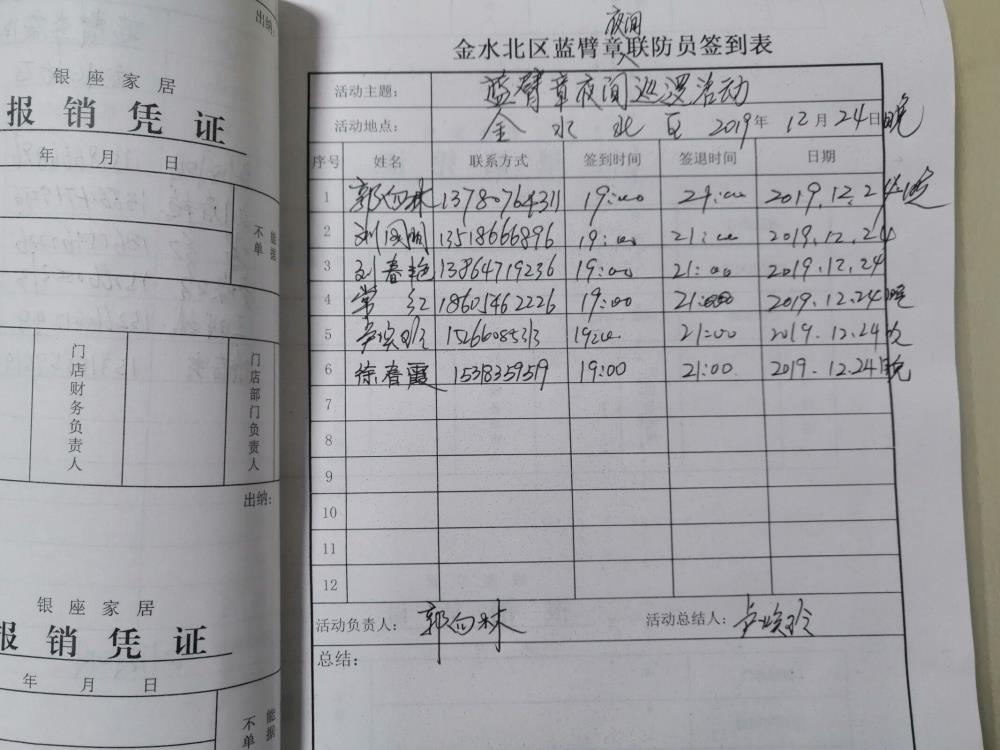 出纳:
银座家居
报销凭证
年 月 日
不 能
单 据
门店财务负责人
门店部门负责人
出纳:
银座家居
报销凭证
年 月 日
不 能
单 据
夜间
金水北区蓝臂章联防员签到表
活动主题: 蓝臂章夜间巡逻活动
活动地点: 金水北区 2019年12月24日晚
序号 姓名 联系方式 签到时间 签退时间 日期
1 郭向林 13780764311 19:00 21:00 2019.12.24晚
2 刘 13518666896 19:00 21:00 2019.12.24
3 刘春艳 13864719236 19:00 21:00 2019.12.24
4 常红 18605462226 19:00 21:00 2019.12.24晚
5 15266085313 19:00 21:00 2019.12.24
6 徐春霞 15318359519 19:00 21:00 2019.12.24晚
7
8
9
10
11
12
活动负责人: 郭向林 活动总结人:
总结: